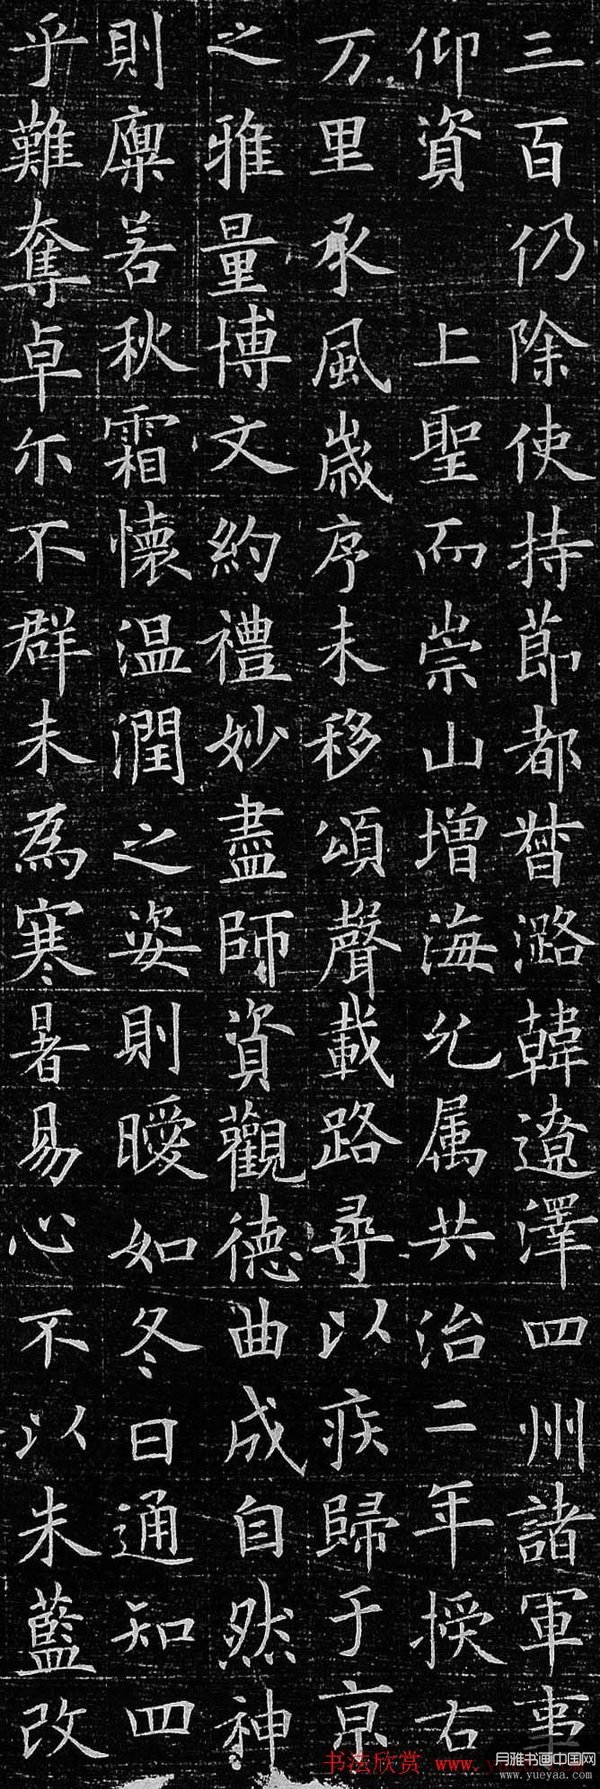 三百仍除使持節都督潞韓遼澤四州諸軍事
仰資 上聖而崇山增海允属共治二年授右
万里承風歲序未移頌聲載路尋以疾歸于京
之雅量博文約禮妙盡師資觀德曲成自然神
則廩若秋霜懷温潤之姿則曖如冬日通知四
乎難奪卓尓不群未為寒暑易心不以朱藍改
书法欣赏 www.y
月雅书画中国网
www.yueyaa.com